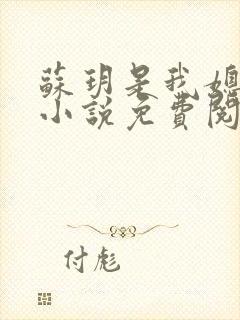 蘇玥是我媳
小說免費閱
付彪